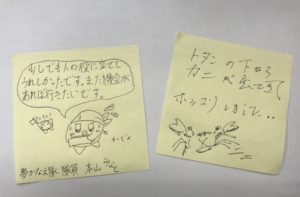 少しでも人の役に立てて
うれしかったです。また機会が
あれば行きたいです。
夢かなえ隊 隊員 本山
トタンの下から
カニが出てきて
ホッコリしました..